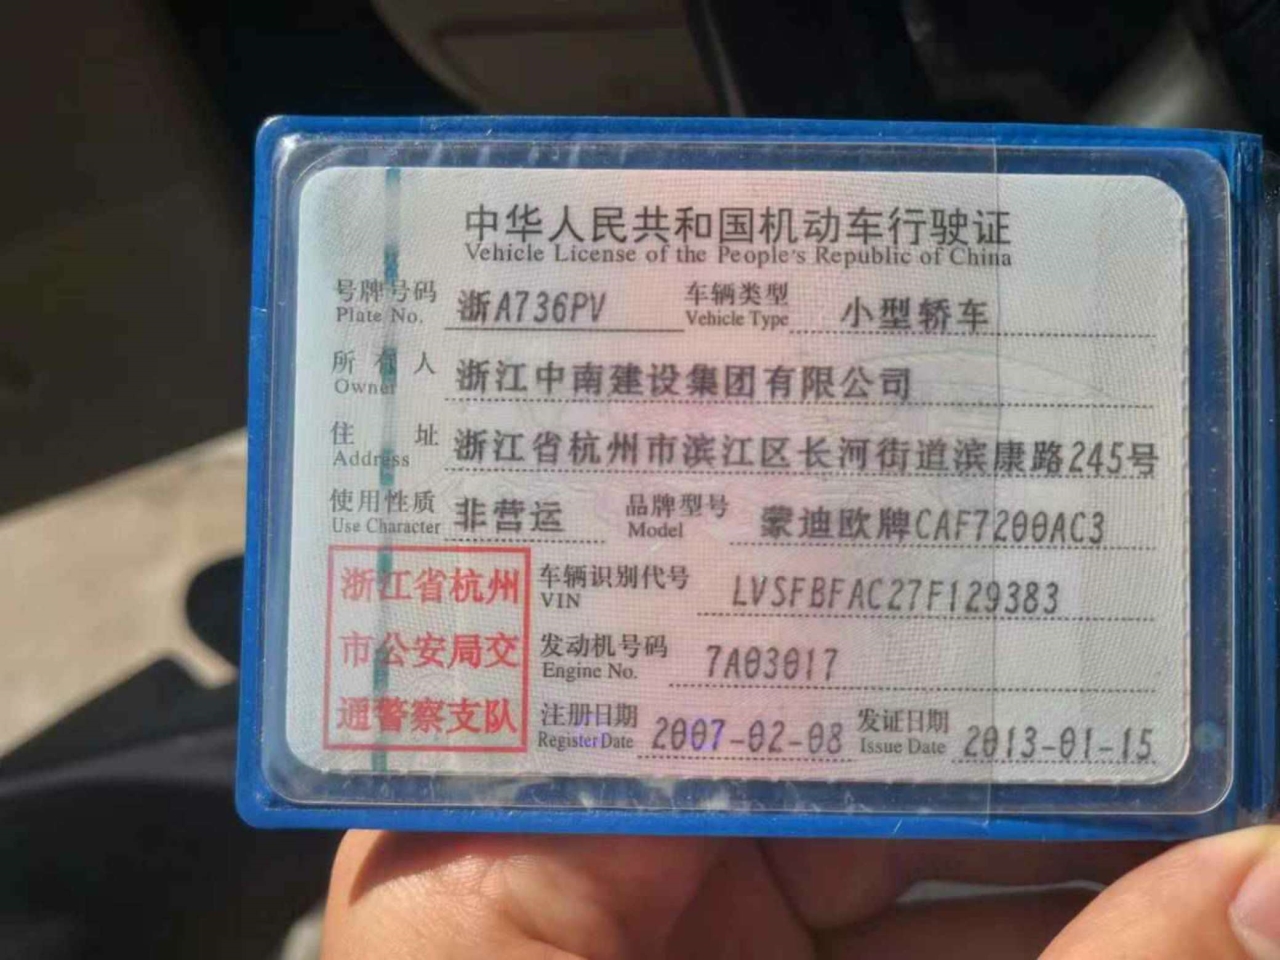 中华人民共和国机动车行驶证
Vehicle License of the People's Republic of China
号牌号码 浙A736PV 车辆类型 小型轿车
Plate No. Vehicle Type
所有人 浙江中南建设集团有限公司
Owner
住址 浙江省杭州市滨江区长河街道滨康路245号
Address
使用性质 非营运 品牌型号 蒙迪欧牌CAF7200AC3
Use Character Model
浙江省杭州
市公安局交
通警察支队
车辆识别代号 LVSFBFAC27F129383
VIN
发动机号码 7A03017
Engine No.
注册日期 2007-02-08 发证日期 2013-01-15
Register Date Issue Date